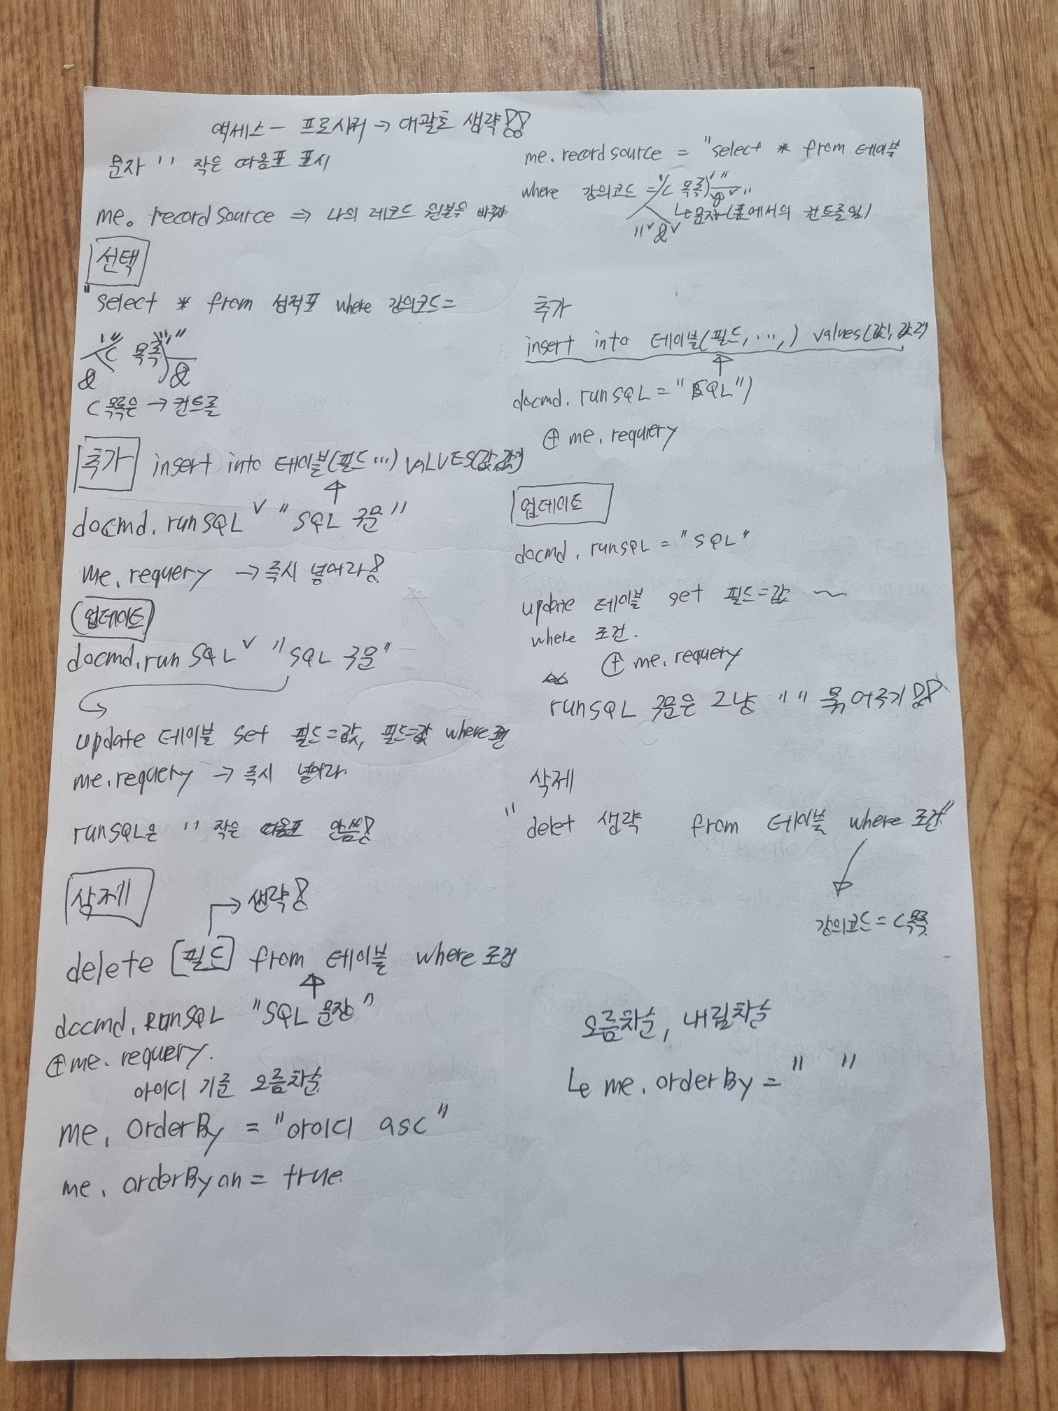 액세스 - 프로시저 → 대괄호 생략!!
문자 ' ' 작은 따옴표 표시
me. record source ⇒ 나의 레코드 원본을 바꾸자
선택
"select * from 성적표 where 강의코드=
'" c 목록 "'"
& &
c 목록은 → 컨트롤
추가 insert into 테이블(필드...) VALUES(값,값)
docmd. run SQL ∨ "SQL 구문"
me. requery → 즉시 넣어라!
업데이트
docmd. run SQL ∨ "SQL 구문"
update 테이블 set 필드=값, 필드=값 where 조건
me.requery → 즉시 넣어라
runSQL은 ' ' 작은 따옴표 안씀!
삭제 → 생략!
delete [필드] from 테이블 where 조건
docmd. RunSQL "SQL 문장"
⊕ me. requery.
아이디 기준 오름차순
me. OrderBy = "아이디 asc"
me. orderByon = true.
me. record source = "select * from 테이블
where 강의코드 = '" c 목록 "'"
& ∨
" ∨ & ∨ ↳ 문자 (폼에서의 컨트롤임)
추가
insert into 테이블(필드, ..., ) values(값1, 값2)
docmd. runSQL = "SQL")
⊕ me. requery
업데이트
docmd. runsql = "SQL"
update 테이블 set 필드=값 ~
where 조건.
⊕ me. requery
runSQL 구문은 그냥 " " 묶어주기!!
삭제
" delet 생략 from 테이블 where 조건"
강의코드 = c목록
오름차순, 내림차순
↳ me. orderBy = " "